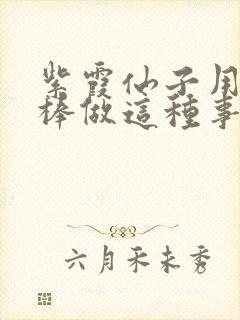 紫霞仙子用
棒做這種事
六月禾未秀